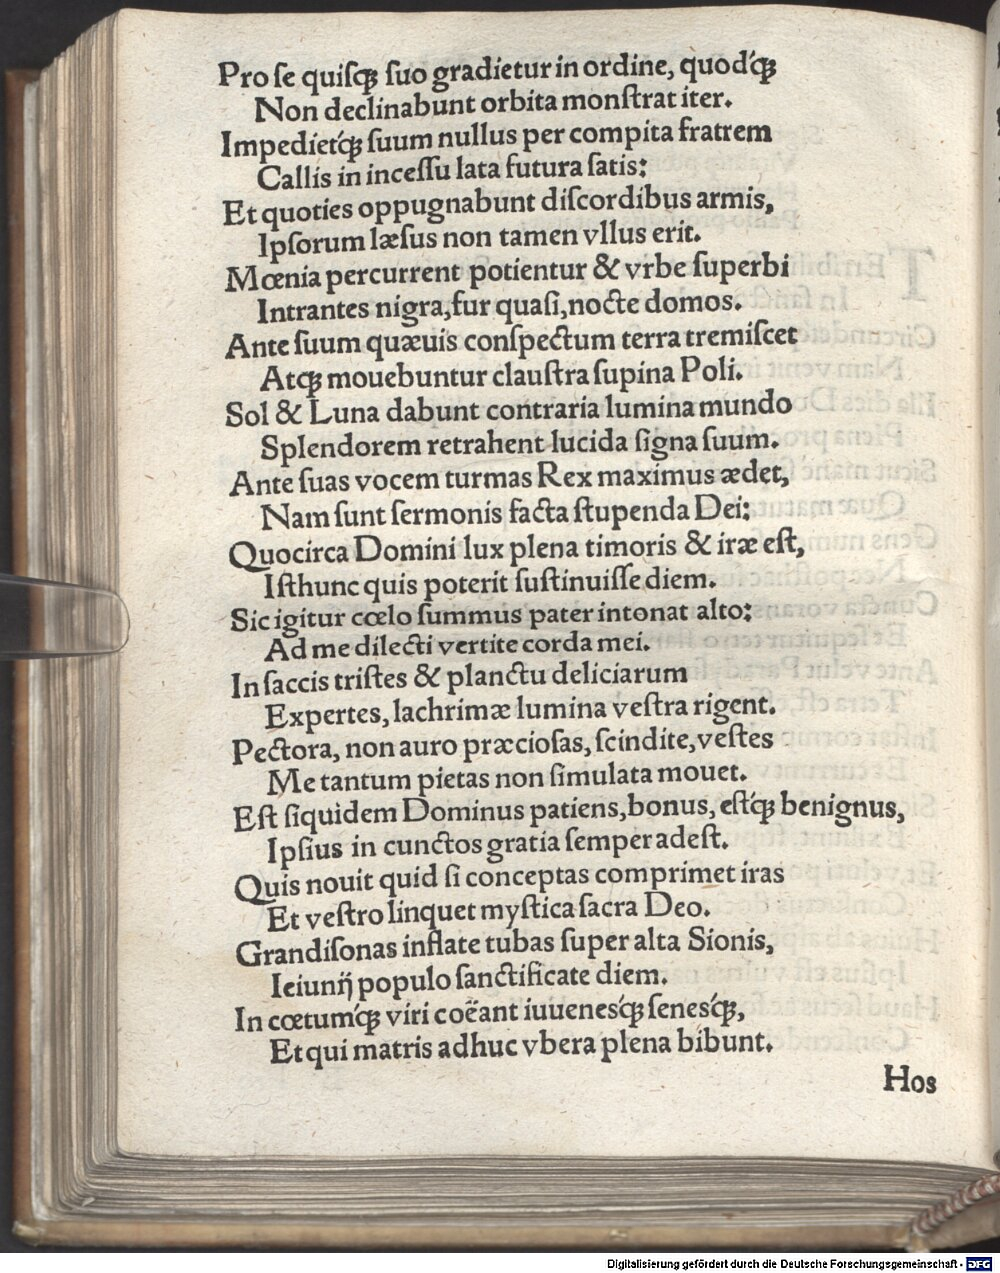 Pro ſe quiſqꝫ ſuo gradietur in ordine, quod'qꝫ
Non declinabunt orbita monſtrat iter.
Impediet'qꝫ ſuum nullus per compita fratrem
Callis in inceſſu lata futura ſatis:
Et quoties oppugnabunt diſcordibus armis,
Ipſorum læſus non tamen vllus erit.
Mœnia percurrent potientur & vrbe ſuperbi
Intrantes nigra, fur quaſi, nocte domos.
Ante ſuum quæuis conſpectum terra tremiſcet
Atqꝫ mouebuntur clauſtra ſupina Poli.
Sol & Luna dabunt contraria lumina mundo
Splendorem retrahent lucida ſigna ſuum.
Ante ſuas vocem turmas Rex maximus ædet,
Nam ſunt ſermonis facta ſtupenda Dei:
Quocirca Domini lux plena timoris & iræ eſt,
Iſthunc quis poterit ſuſtinuiſſe diem.
Sic igitur cœlo ſummus pater intonat alto:
Ad me dilecti vertite corda mei.
In ſaccis triſtes & planctu deliciarum
Expertes, lachrimæ lumina veſtra rigent.
Pectora, non auro præcioſas, ſcindite, veſtes
Me tantum pietas non ſimulata mouet.
Eſt ſiquidem Dominus patiens, bonus, eſt'qꝫ benignus,
Ipſius in cunctos gratia ſemper adeſt.
Quis nouit quid ſi conceptas comprimet iras
Et veſtro linquet myſtica ſacra Deo.
Grandiſonas inflate tubas ſuper alta Sionis,
Ieiunĳ populo ſanctificate diem.
In cœtum'qꝫ viri coëant iuuenes'qꝫ ſenes'qꝫ,
Et qui matris adhuc vbera plena bibunt.
Hos
Digitalisierung gefördert durch die Deutsche Forschungsgemeinschaft - DFG